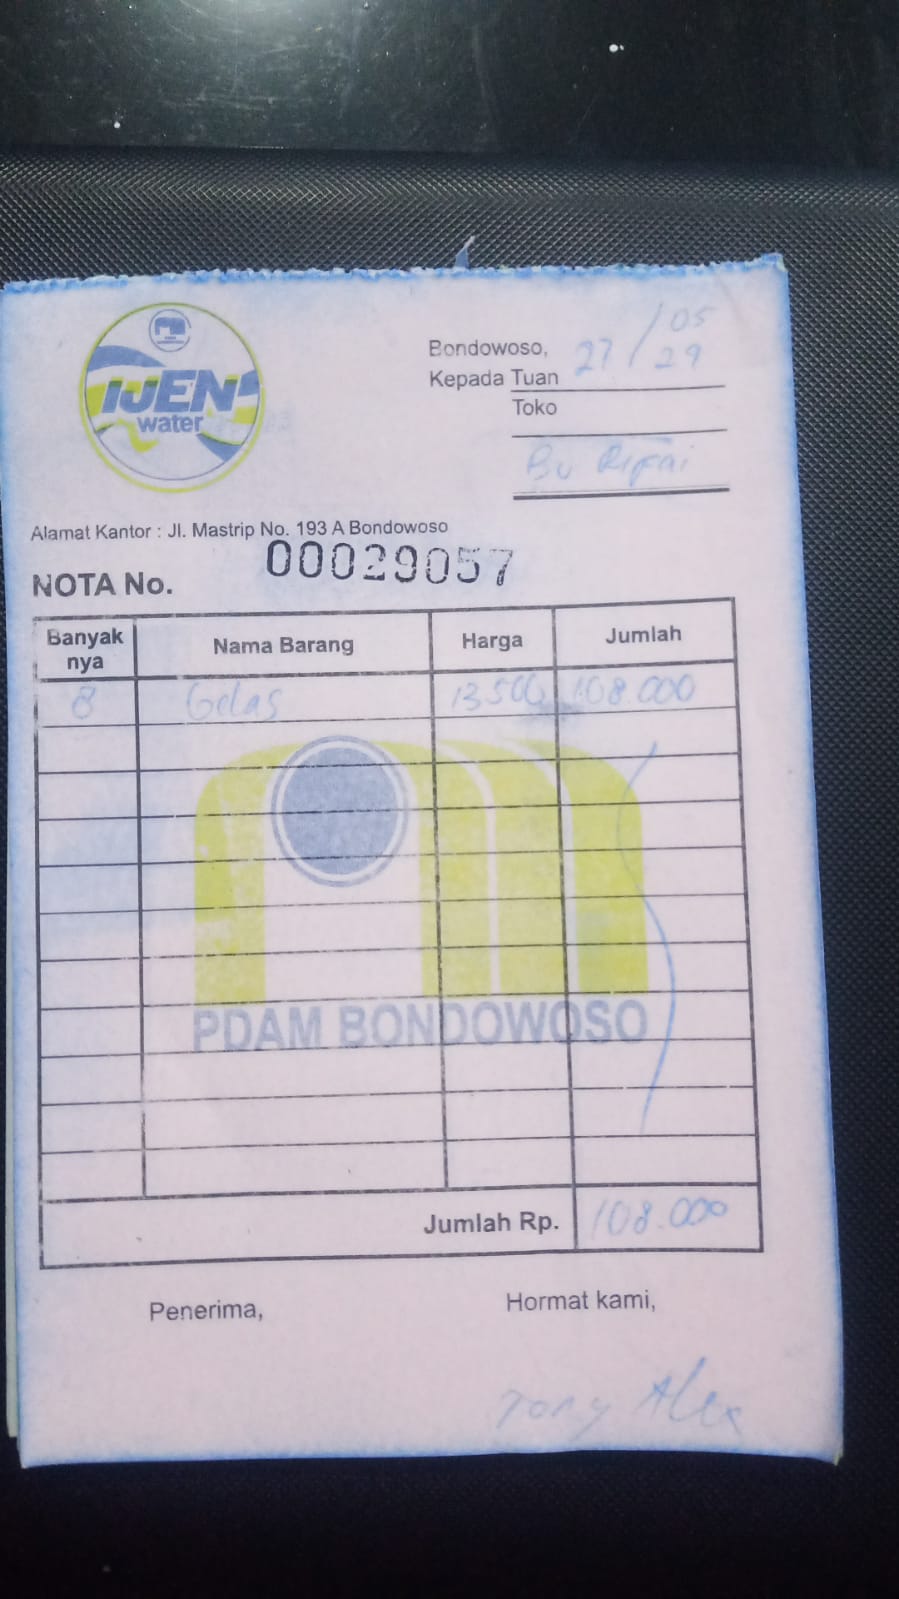 IJEN
water
Bondowoso, 27/05
29
Kepada Tuan
Toko
Bu Rifai
Alamat Kantor : Jl. Mastrip No. 193 A Bondowoso
NOTA No. 00029057
Banyak nya Nama Barang Harga Jumlah
8 Gelas 13.500 108.000
PDAM BONDOWOSO
Jumlah Rp. 108.000
Penerima, Hormat kami,
Tony Alex